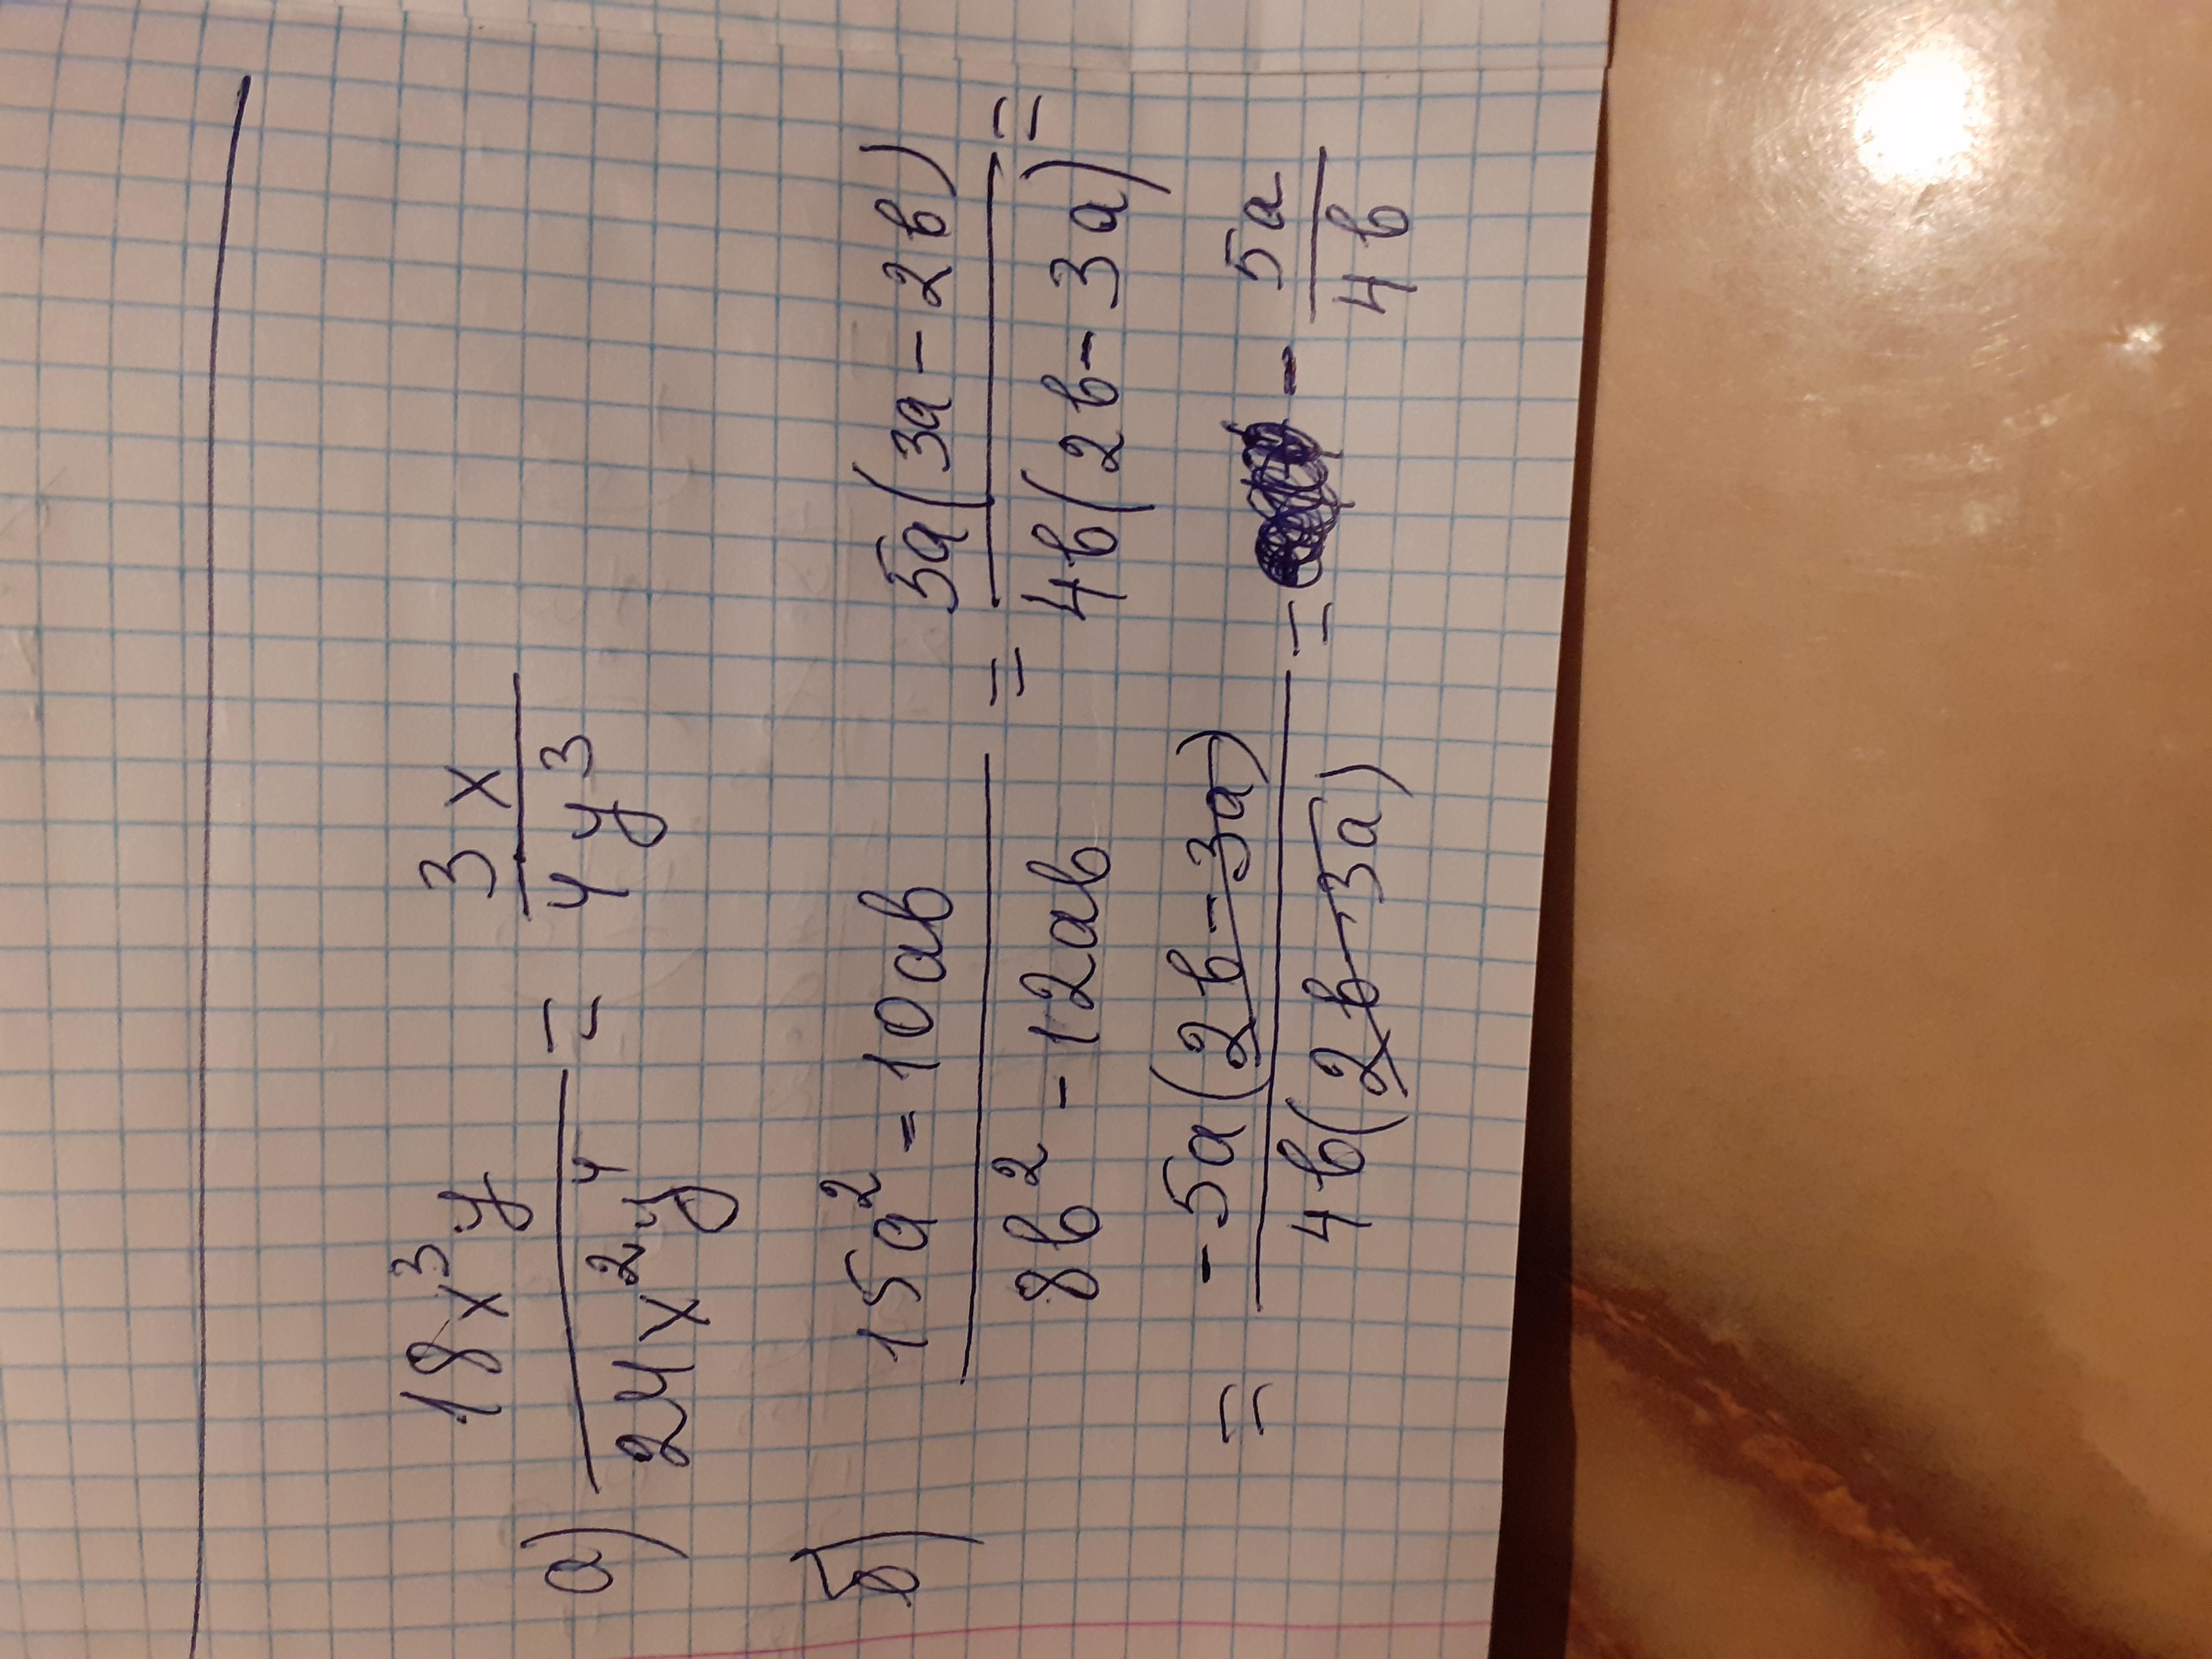 а) 18x³y / 24x²y⁴ = 3x / 4y³
б) 15a² - 10ab / 8b² - 12ab = 5a(3a - 2b) / 4b(2b - 3a) =
= -5a(2b - 3a) / 4b(2b - 3a) = - 5a / 4b